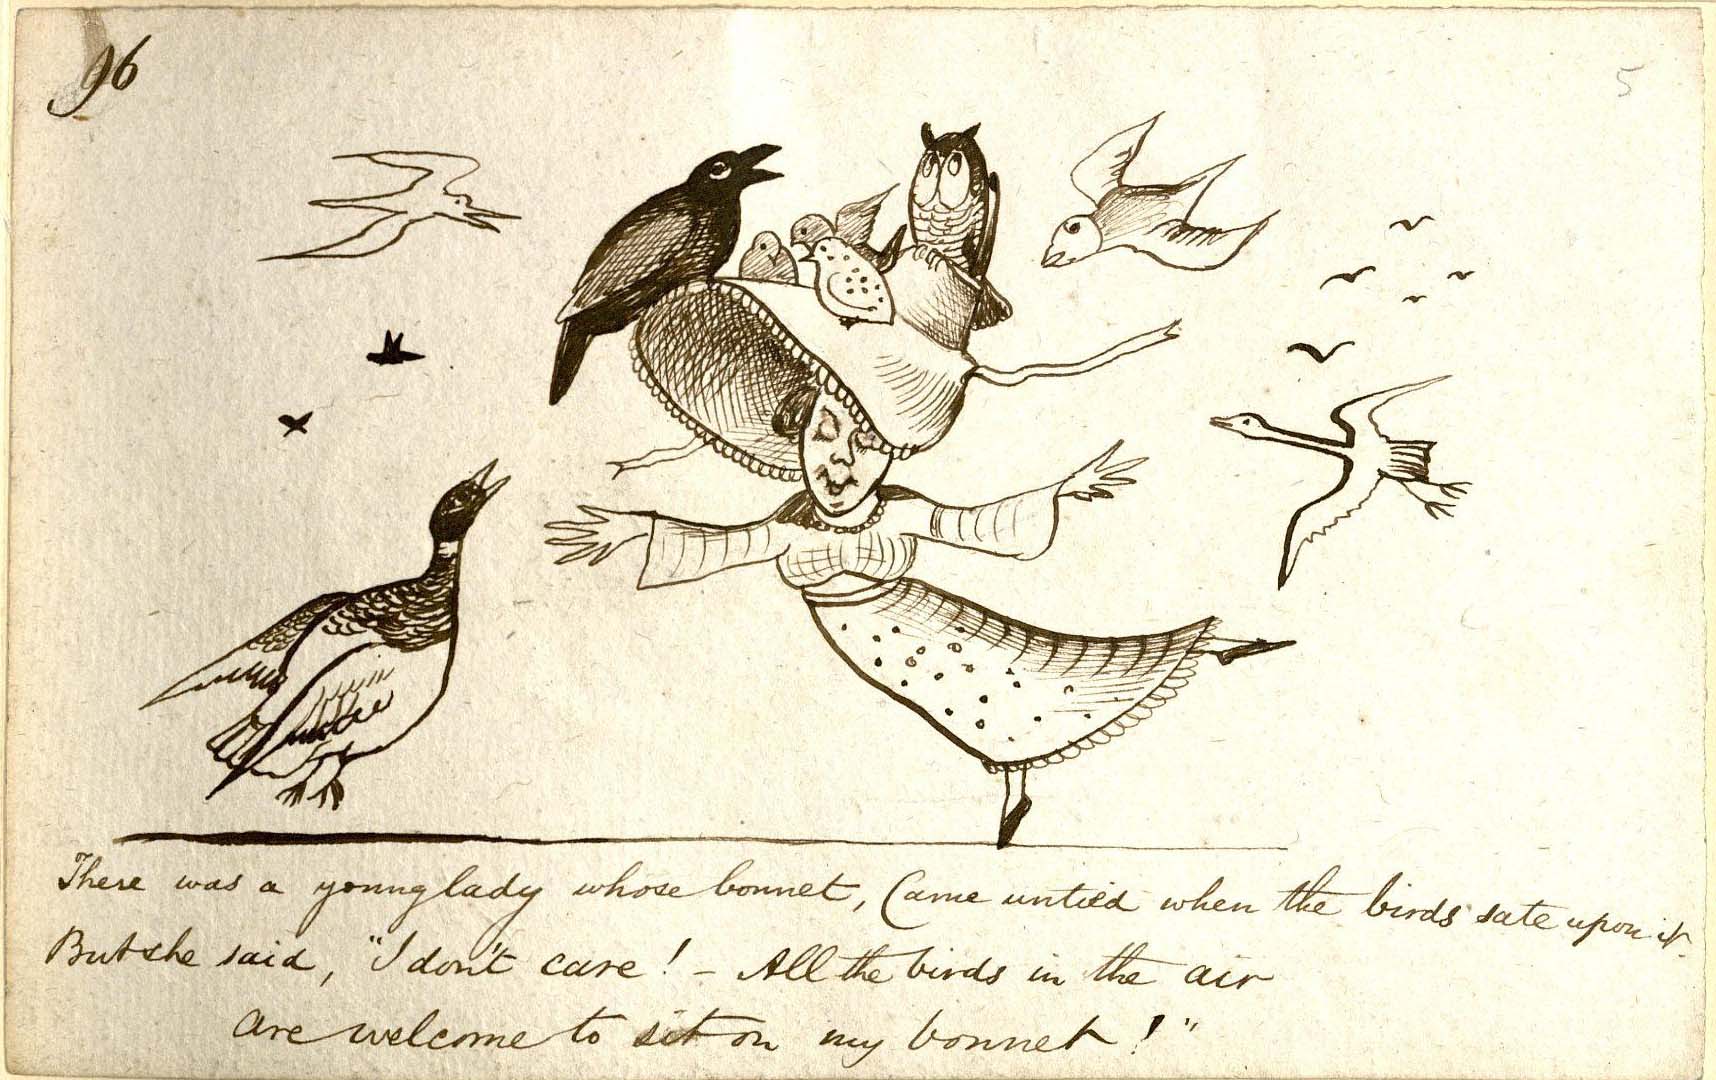 96
5
There was a young lady whose bonnet, Came untied when the birds sate upon it.
But she said, "I don't care! – All the birds in the air
are welcome to sit on my bonnet!"